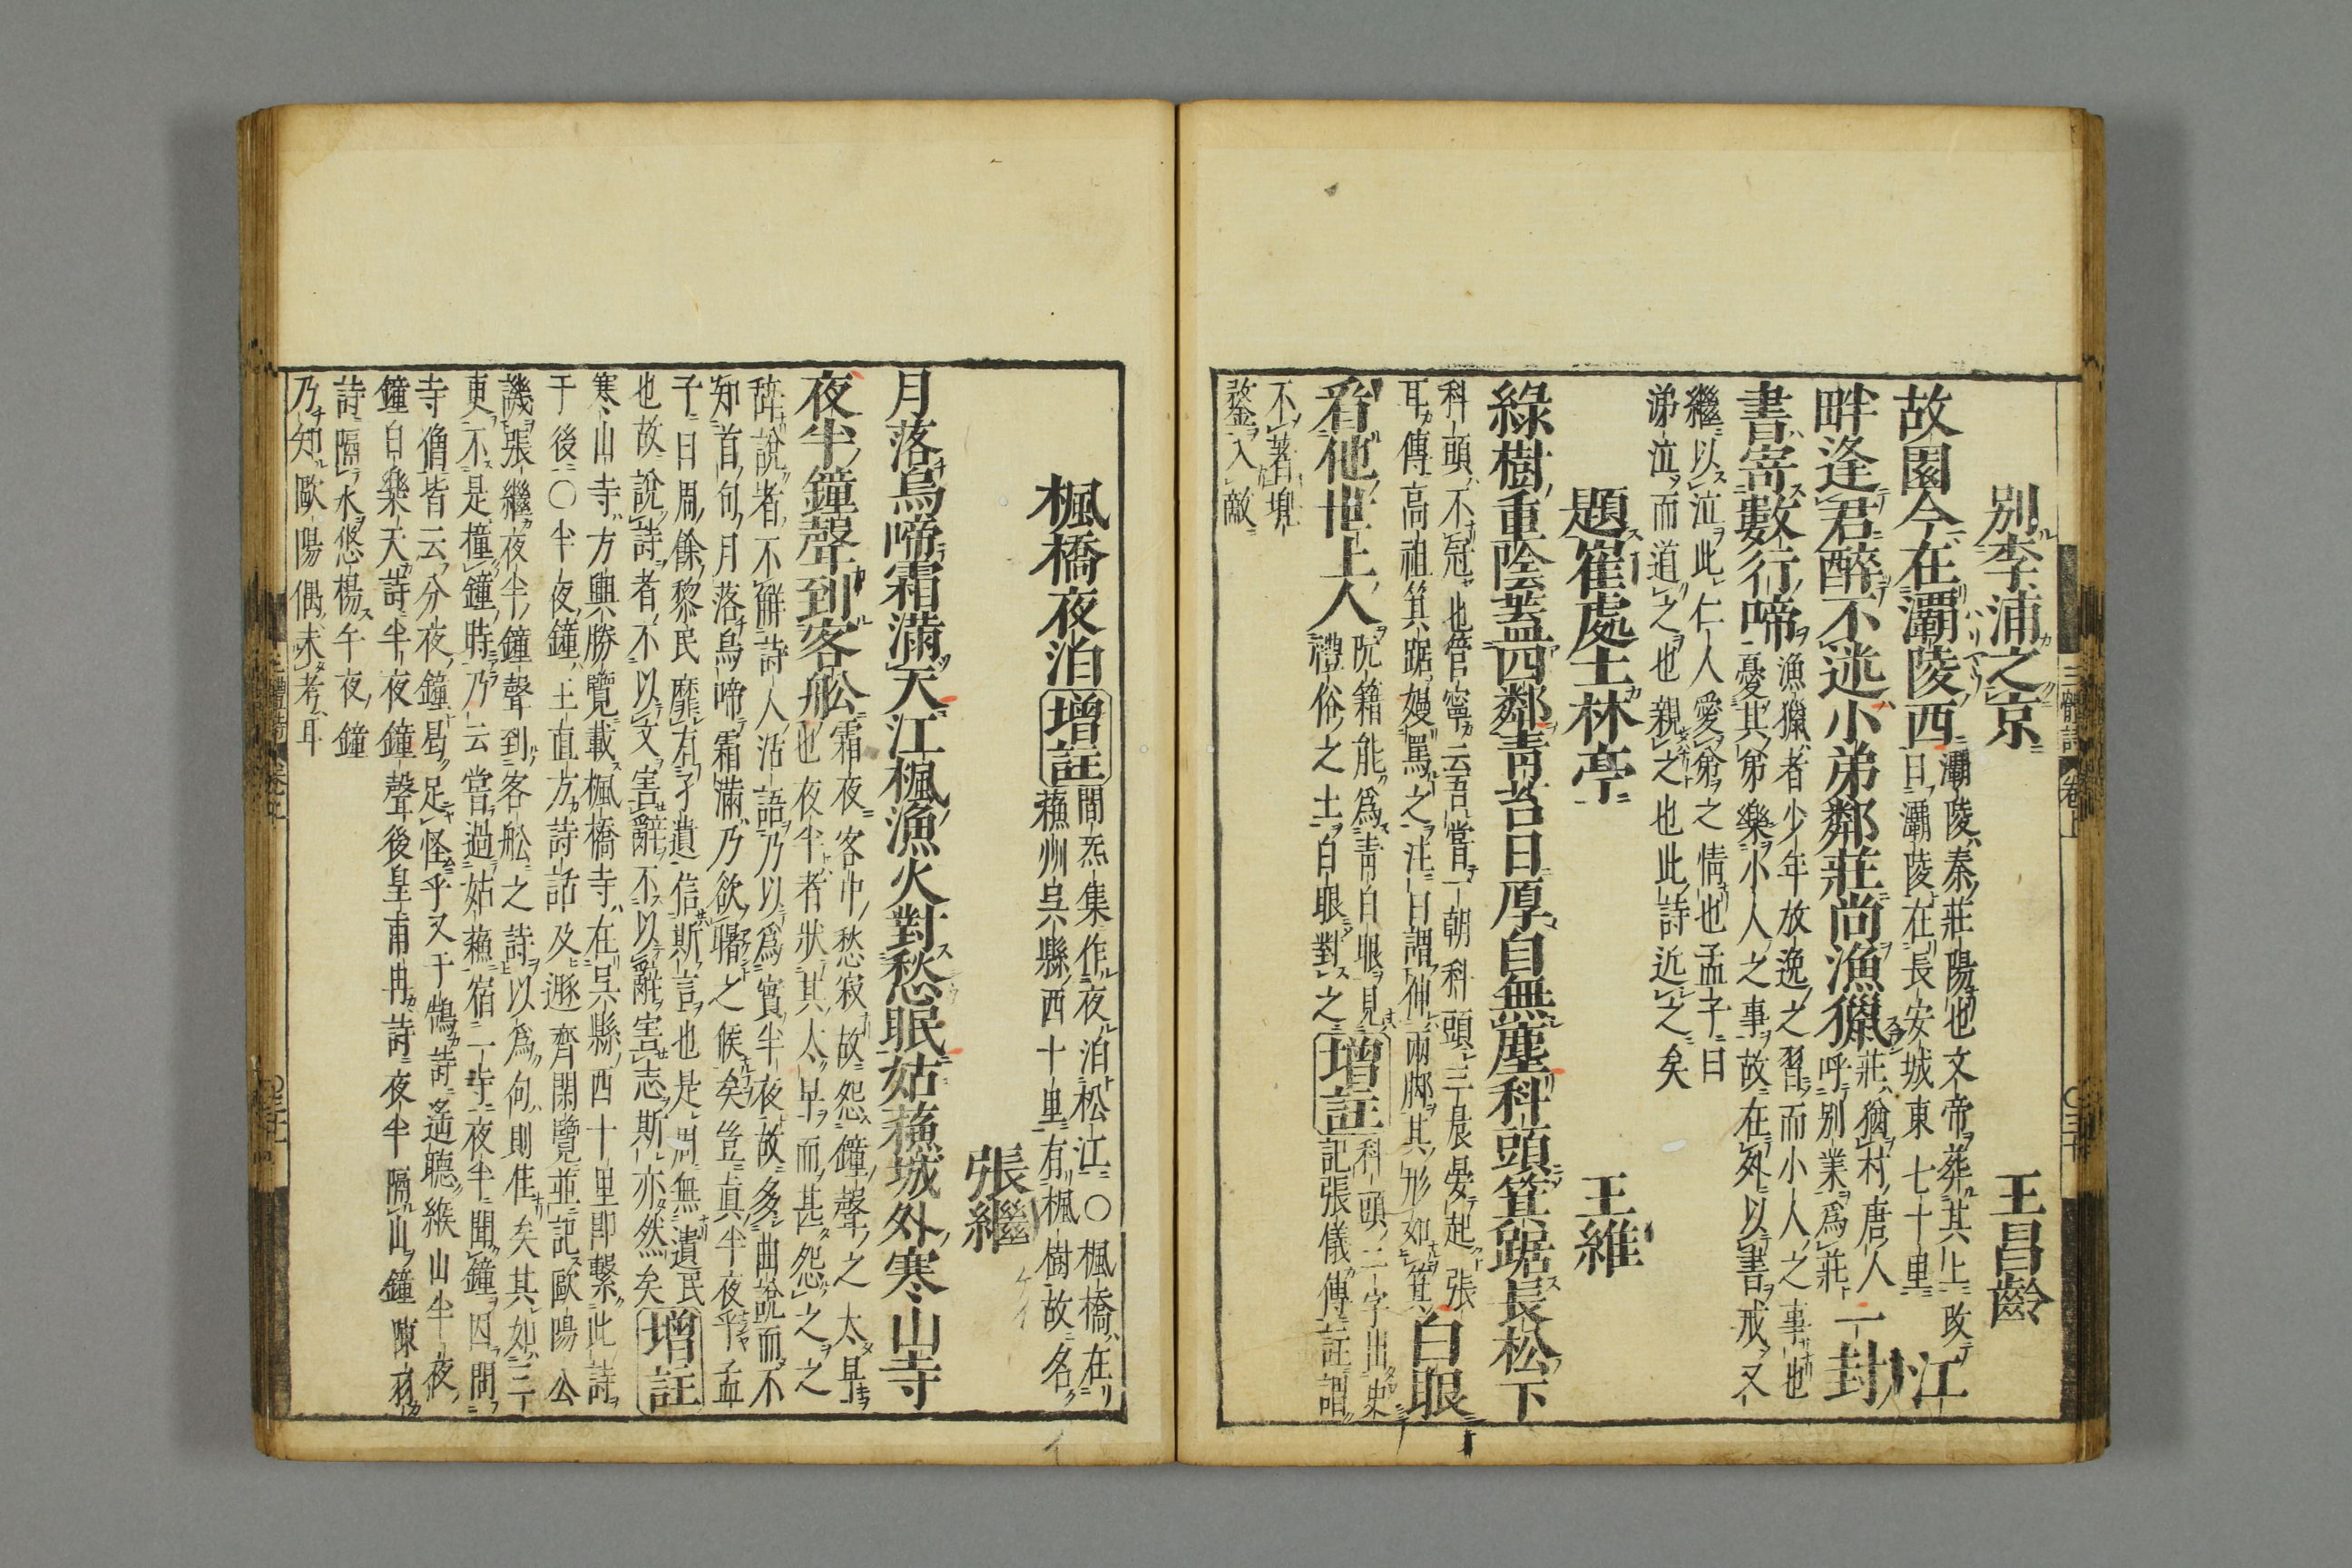 別李浦之京
王昌齡
故園今在灞陵西
灞陵秦莊陽也文帝葬其上改
曰灞陵在長安城東七十里
江
畔逢君醉不迷小弟鄰莊尚漁獵
莊猶村唐人
呼別業爲莊
一封
書寄數行啼
漁獵者少年放逸之習而小人之事也
憂其弟樂小人之事故在外以書戒又
繼以泣此仁人愛弟之情也孟子曰
涕泣而道之也親之也此詩近之矣
題崔處士林亭
王維
綠樹重陰蓋四鄰青苔日厚自無塵科頭箕踞長松下
科頭不冠也管寧云吾嘗一朝科頭三晨晏起張
耳傳高祖箕踞嫚罵之注曰謂伸兩脚其形如箕
白眼
看他世上人
阮籍能爲青白眼見
禮俗之士白眼對之
增註
科頭二字出史
記張儀傳註謂
不著兜
鍪入敵
楓橋夜泊
增註
間氣集作夜泊松江○楓橋在
蘓州吳縣西十里有楓樹故名
張繼
月落烏啼霜滿天江楓漁火對愁眠姑蘓城外寒山寺
夜半鐘聲到客舩
霜夜客中愁寂故怨鐘聲之太早
也夜半者狀其太早而甚怨之之
辭說者不解詩人活語乃以爲實半夜故多曲說而不
知首句月落烏啼霜滿乃欲曙之候矣豈真半夜乎孟
子曰周餘黎民靡有孑遺信斯言也是周無遺民
也故說詩者不以文害辭不以辭害志斯亦然矣
增註
寒山寺方輿勝覽載楓橋寺在吳縣西十里即繫此詩
于後○半夜鐘王直方詩話及遯齊閑覽並記歐陽公
譏張繼夜半鐘聲到客舩之詩以爲句則佳矣其如三
更不是撞鐘時乃云嘗過姑蘓宿一寺夜半聞鐘因問
寺僧皆云分夜鐘曷足怪乎又于鵠詩遙聽緱山半夜
鐘白樂天詩半夜鐘聲後皇甫冉詩夜半隔山鐘陳羽
詩隔水悠楊午夜鐘
乃知歐陽偶未考耳
三體詩
卷上